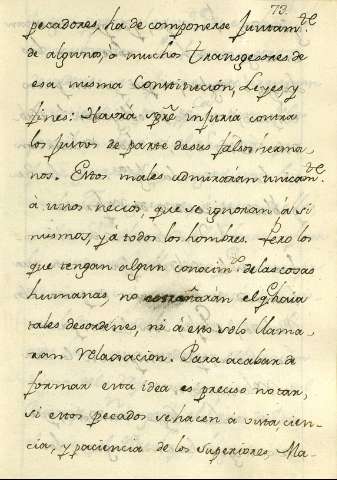 73.
pecadores, ha de componerse juntam.te
de algunos, ò muchos transgresores de
esa misma Constitución, Leyes, y
fines: Havrá spre injuria contra
los justos de parte de sus falsos herma
nos. Estos males admiraran unicam.te
à unos necios, que se ignoran à si
mismos, y à todos los hombres. Pero los
que tengan algun conocim.to de las cosas
humanas, no estrañaran el q.e haia
tales desordenes, ni à esto solo llama-
ran relaxacion. Para acabar de
formar esta idea es preciso notar,
si estos pecados se hacen à vista, cien-
cia, y paciencia de los Superiores, Ma-